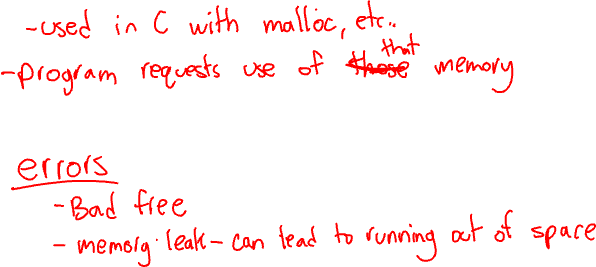 -used in C with malloc, etc..
-program requests use of those that memory
errors
-Bad free
- memory leak - can lead to running out of space